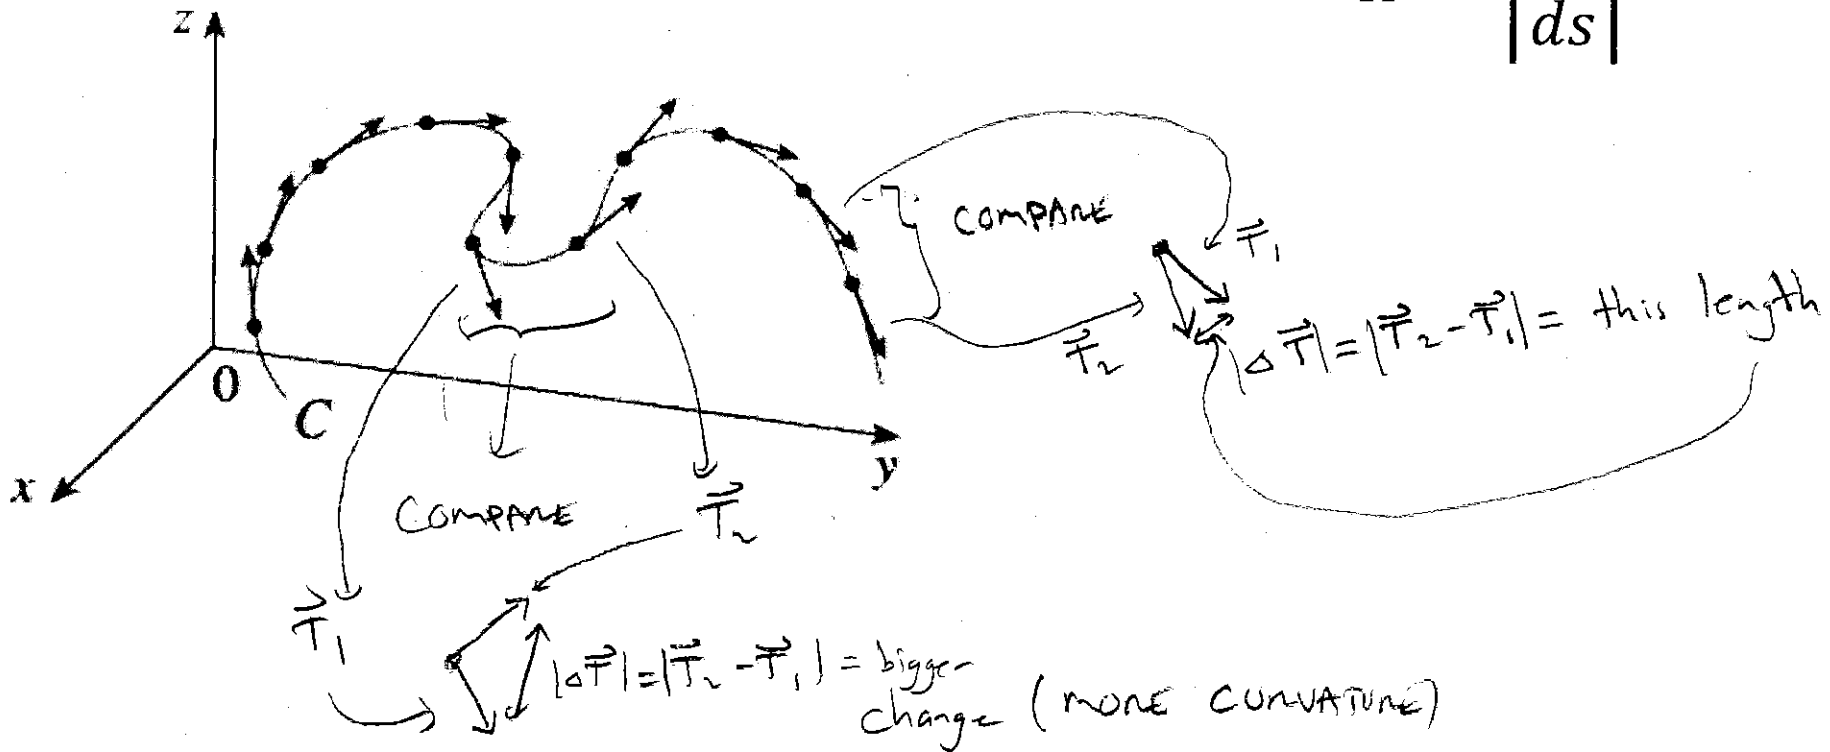 |ds|
z
COMPARE
T⃗₁
T⃗₂
|ΔT⃗| = |T⃗₂ - T⃗₁| = this length
0
C
y
x
COMPARE
T⃗₂
T⃗₁
|ΔT⃗| = |T⃗₂ - T⃗₁| = bigger
change (MORE CURVATURE)